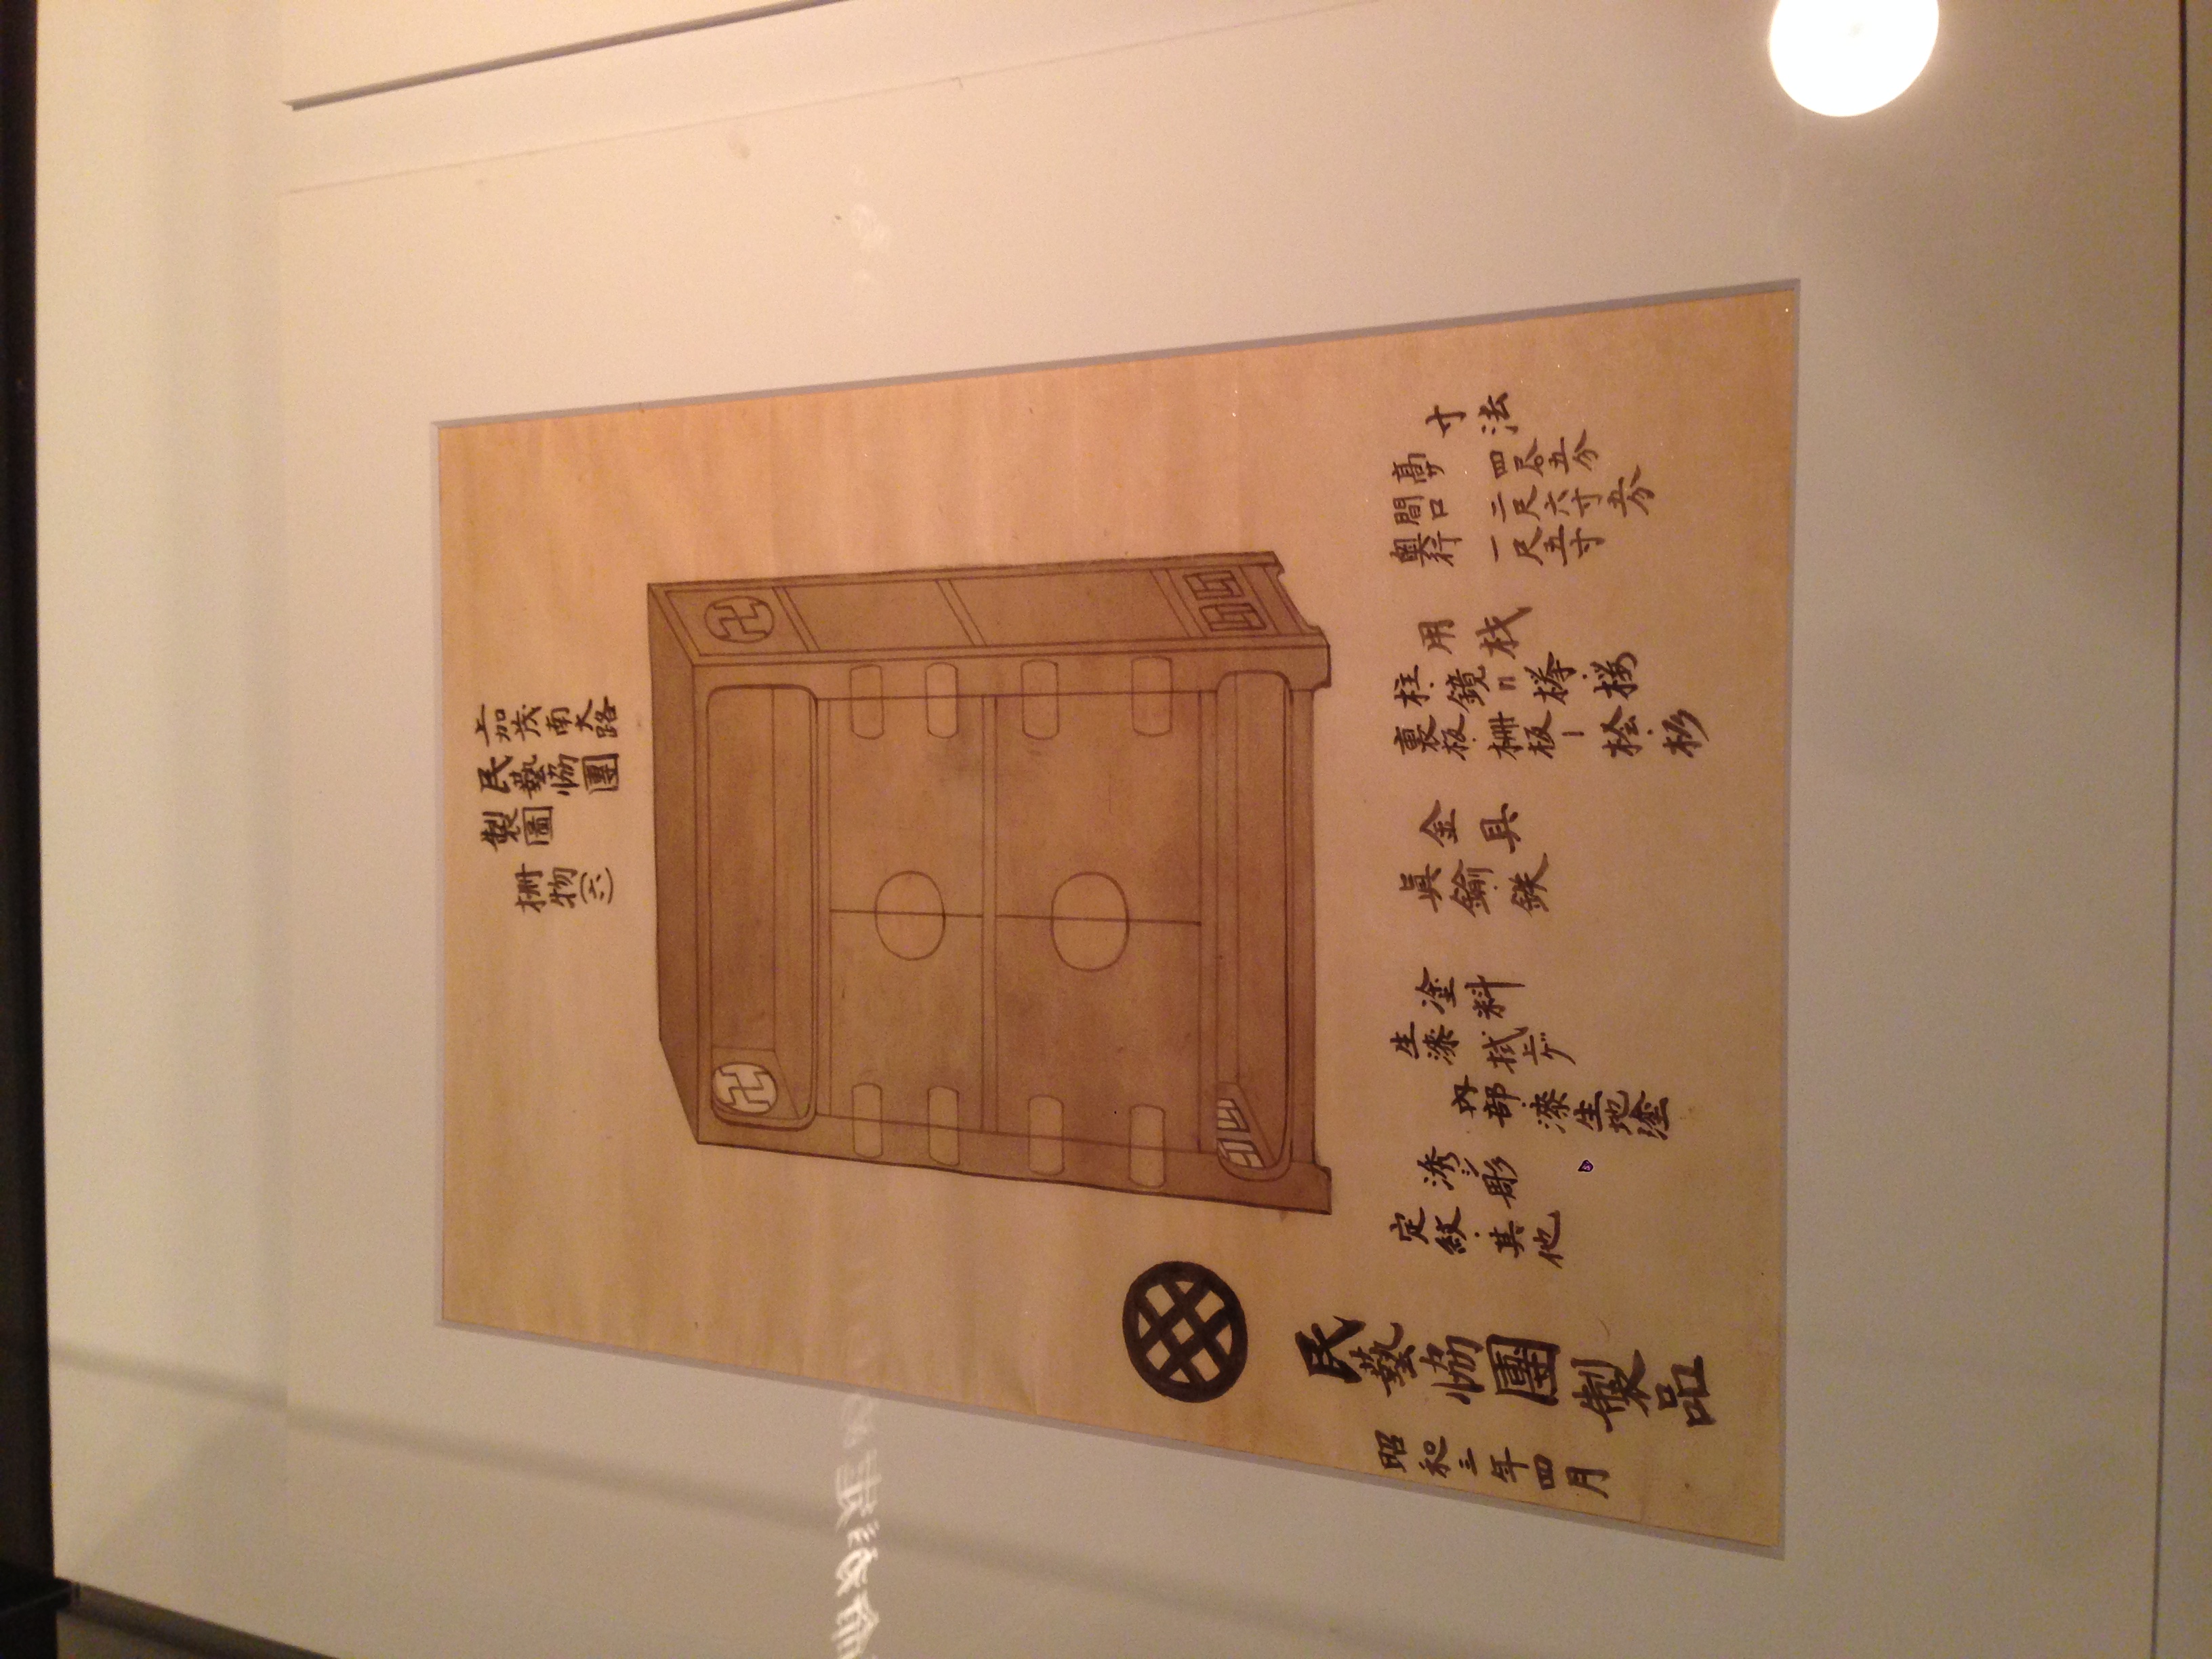 上加茂南大路
民藝協團
製圖
棚物
寸法
高サ 四尺〇五分
間口 二尺六寸五分
奥行 一尺五寸
用材
柱.鏡〃欅.桜
裏板.棚板ー桧.杉
金具
眞鍮.鉄
塗料
生漆拭上ゲ
内部.漆生地塗
透シ彫
定紋.其他
民藝協團製品
昭和三年四月